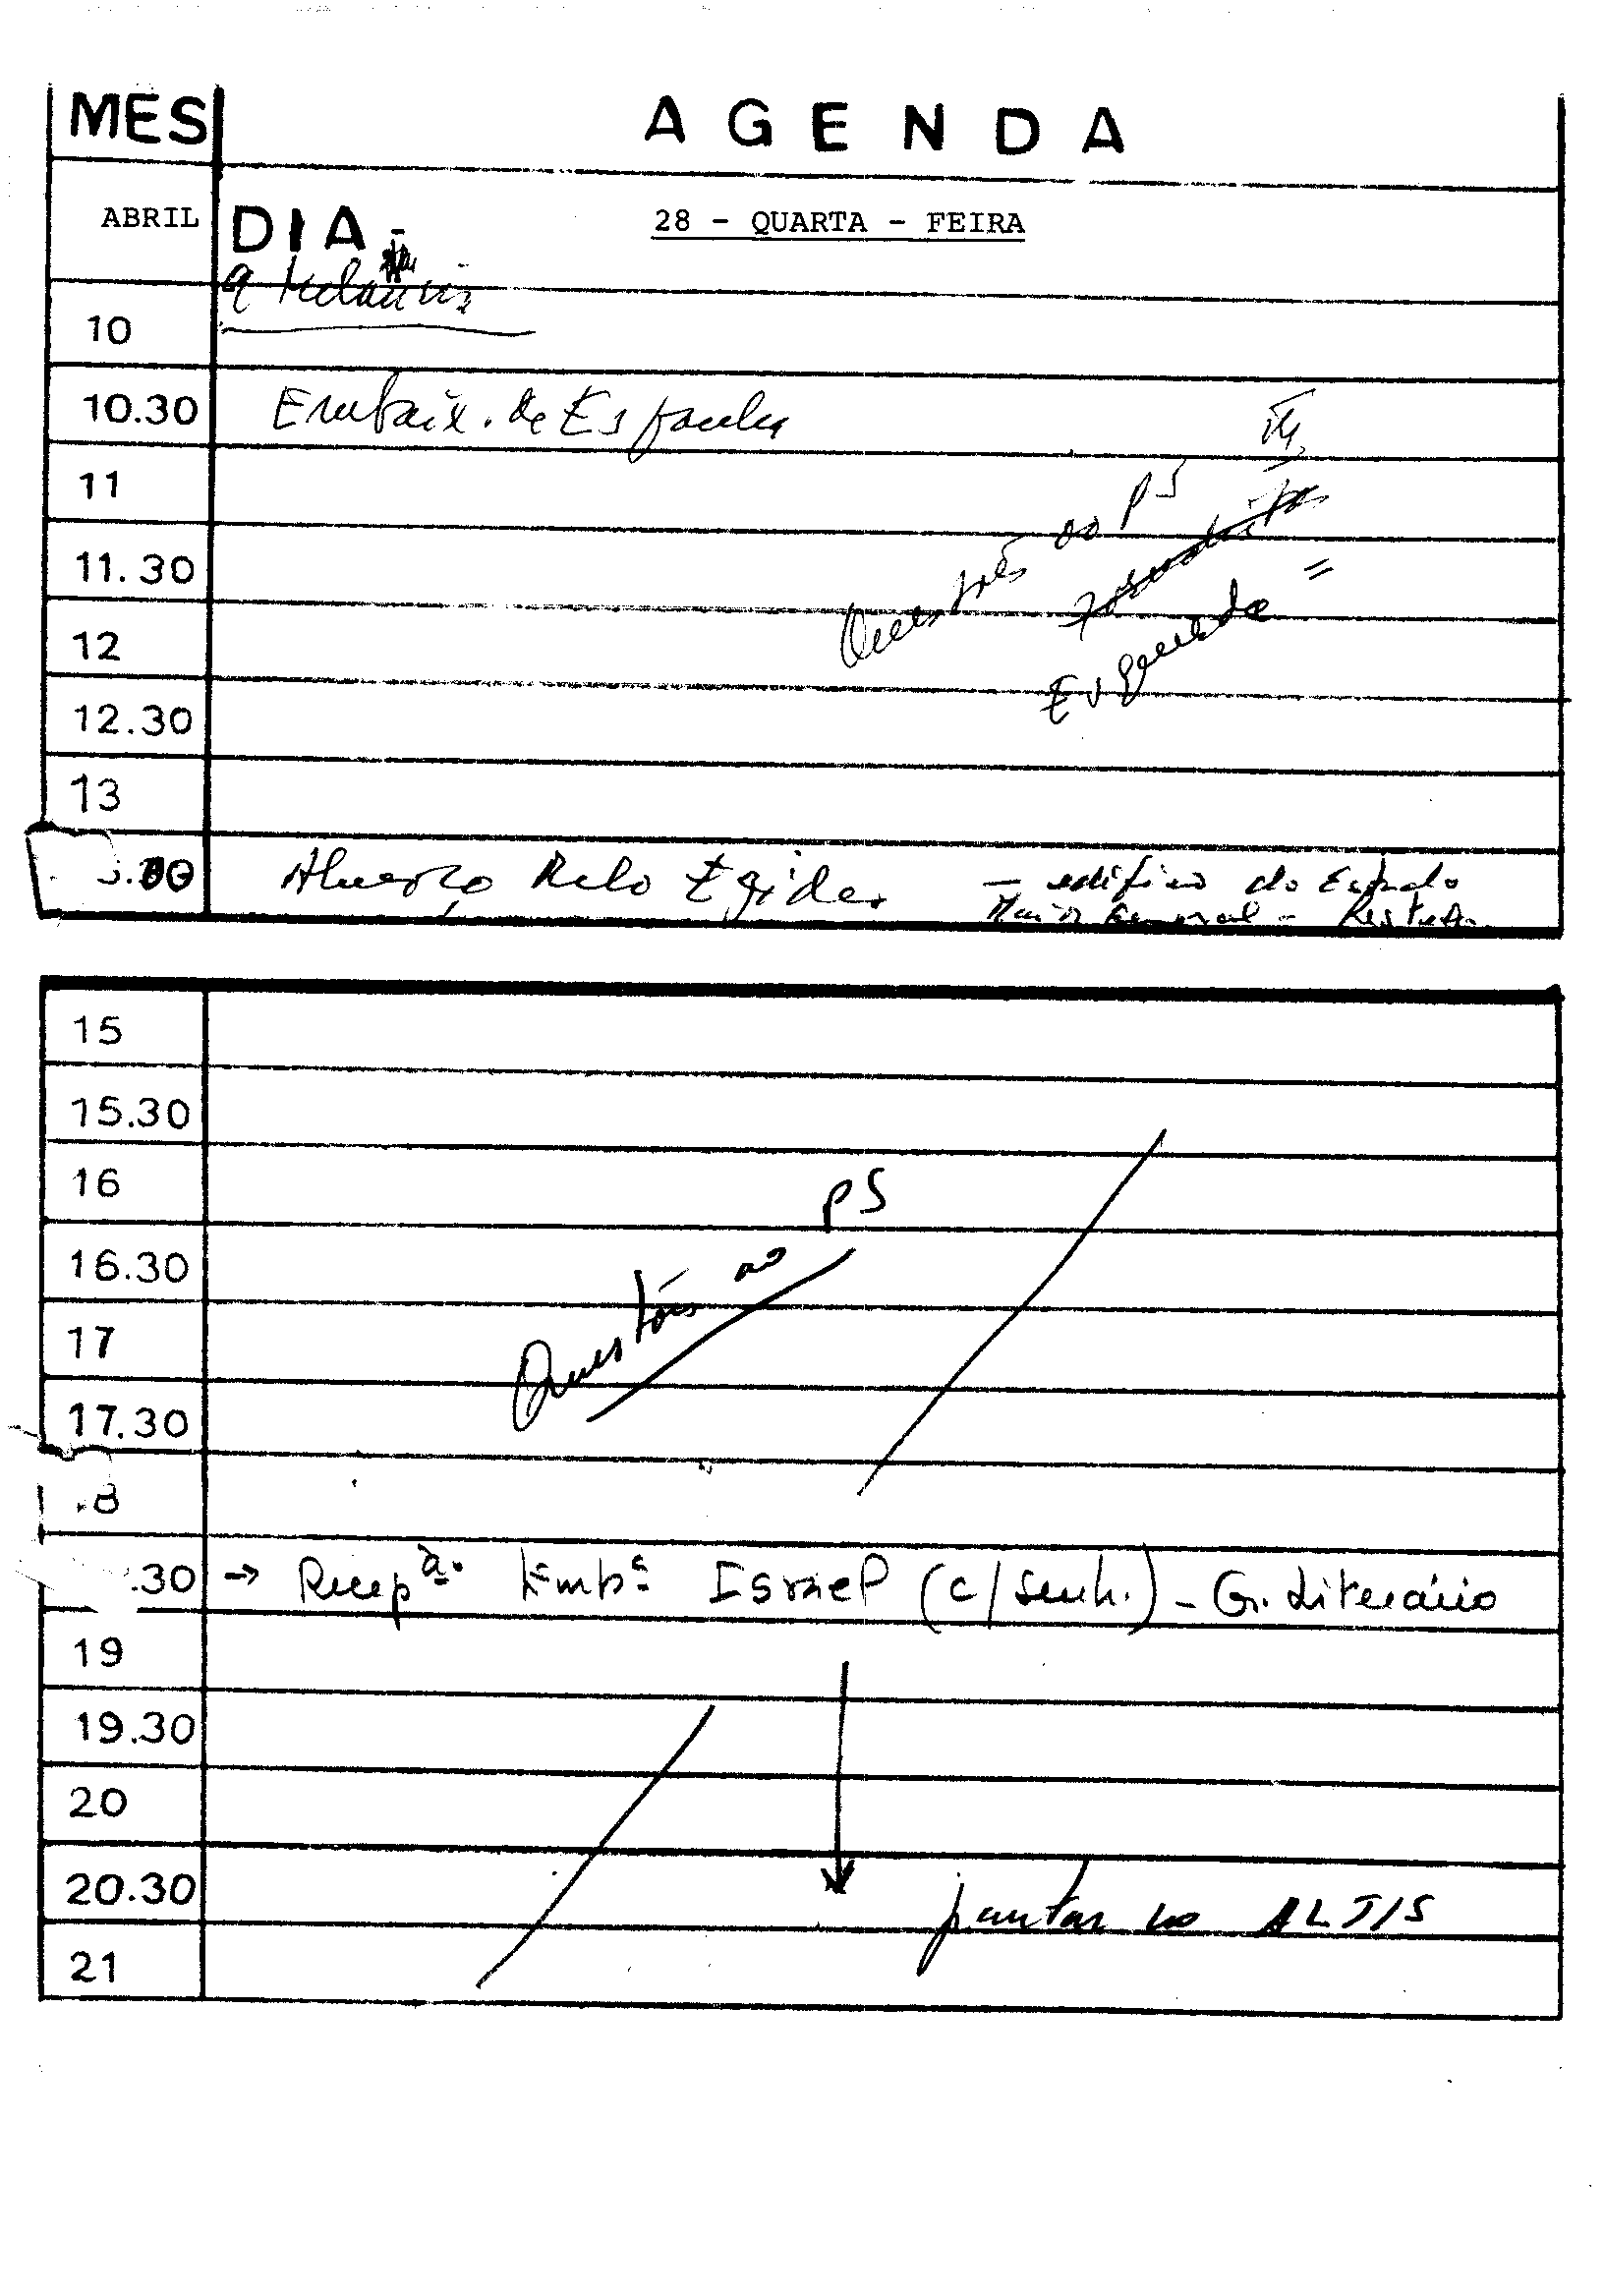 MES
A G E N D A
ABRIL
DIA-
28 - QUARTA - FEIRA
9
10
10.30 Embaix. de Espanha
11
11.30
Questões ao PS
12
Esquerda =
12.30
13
Almoço Melo Egídio. — edifício do Estado
Maior General - Restelo
15
15.30
16
PS
16.30
Questões ao
17
17.30
18
.30 → Recepª. Embª Israel (c/ senh.) - G. Literário
19
19.30
20
20.30
jantar no ALTIS
21